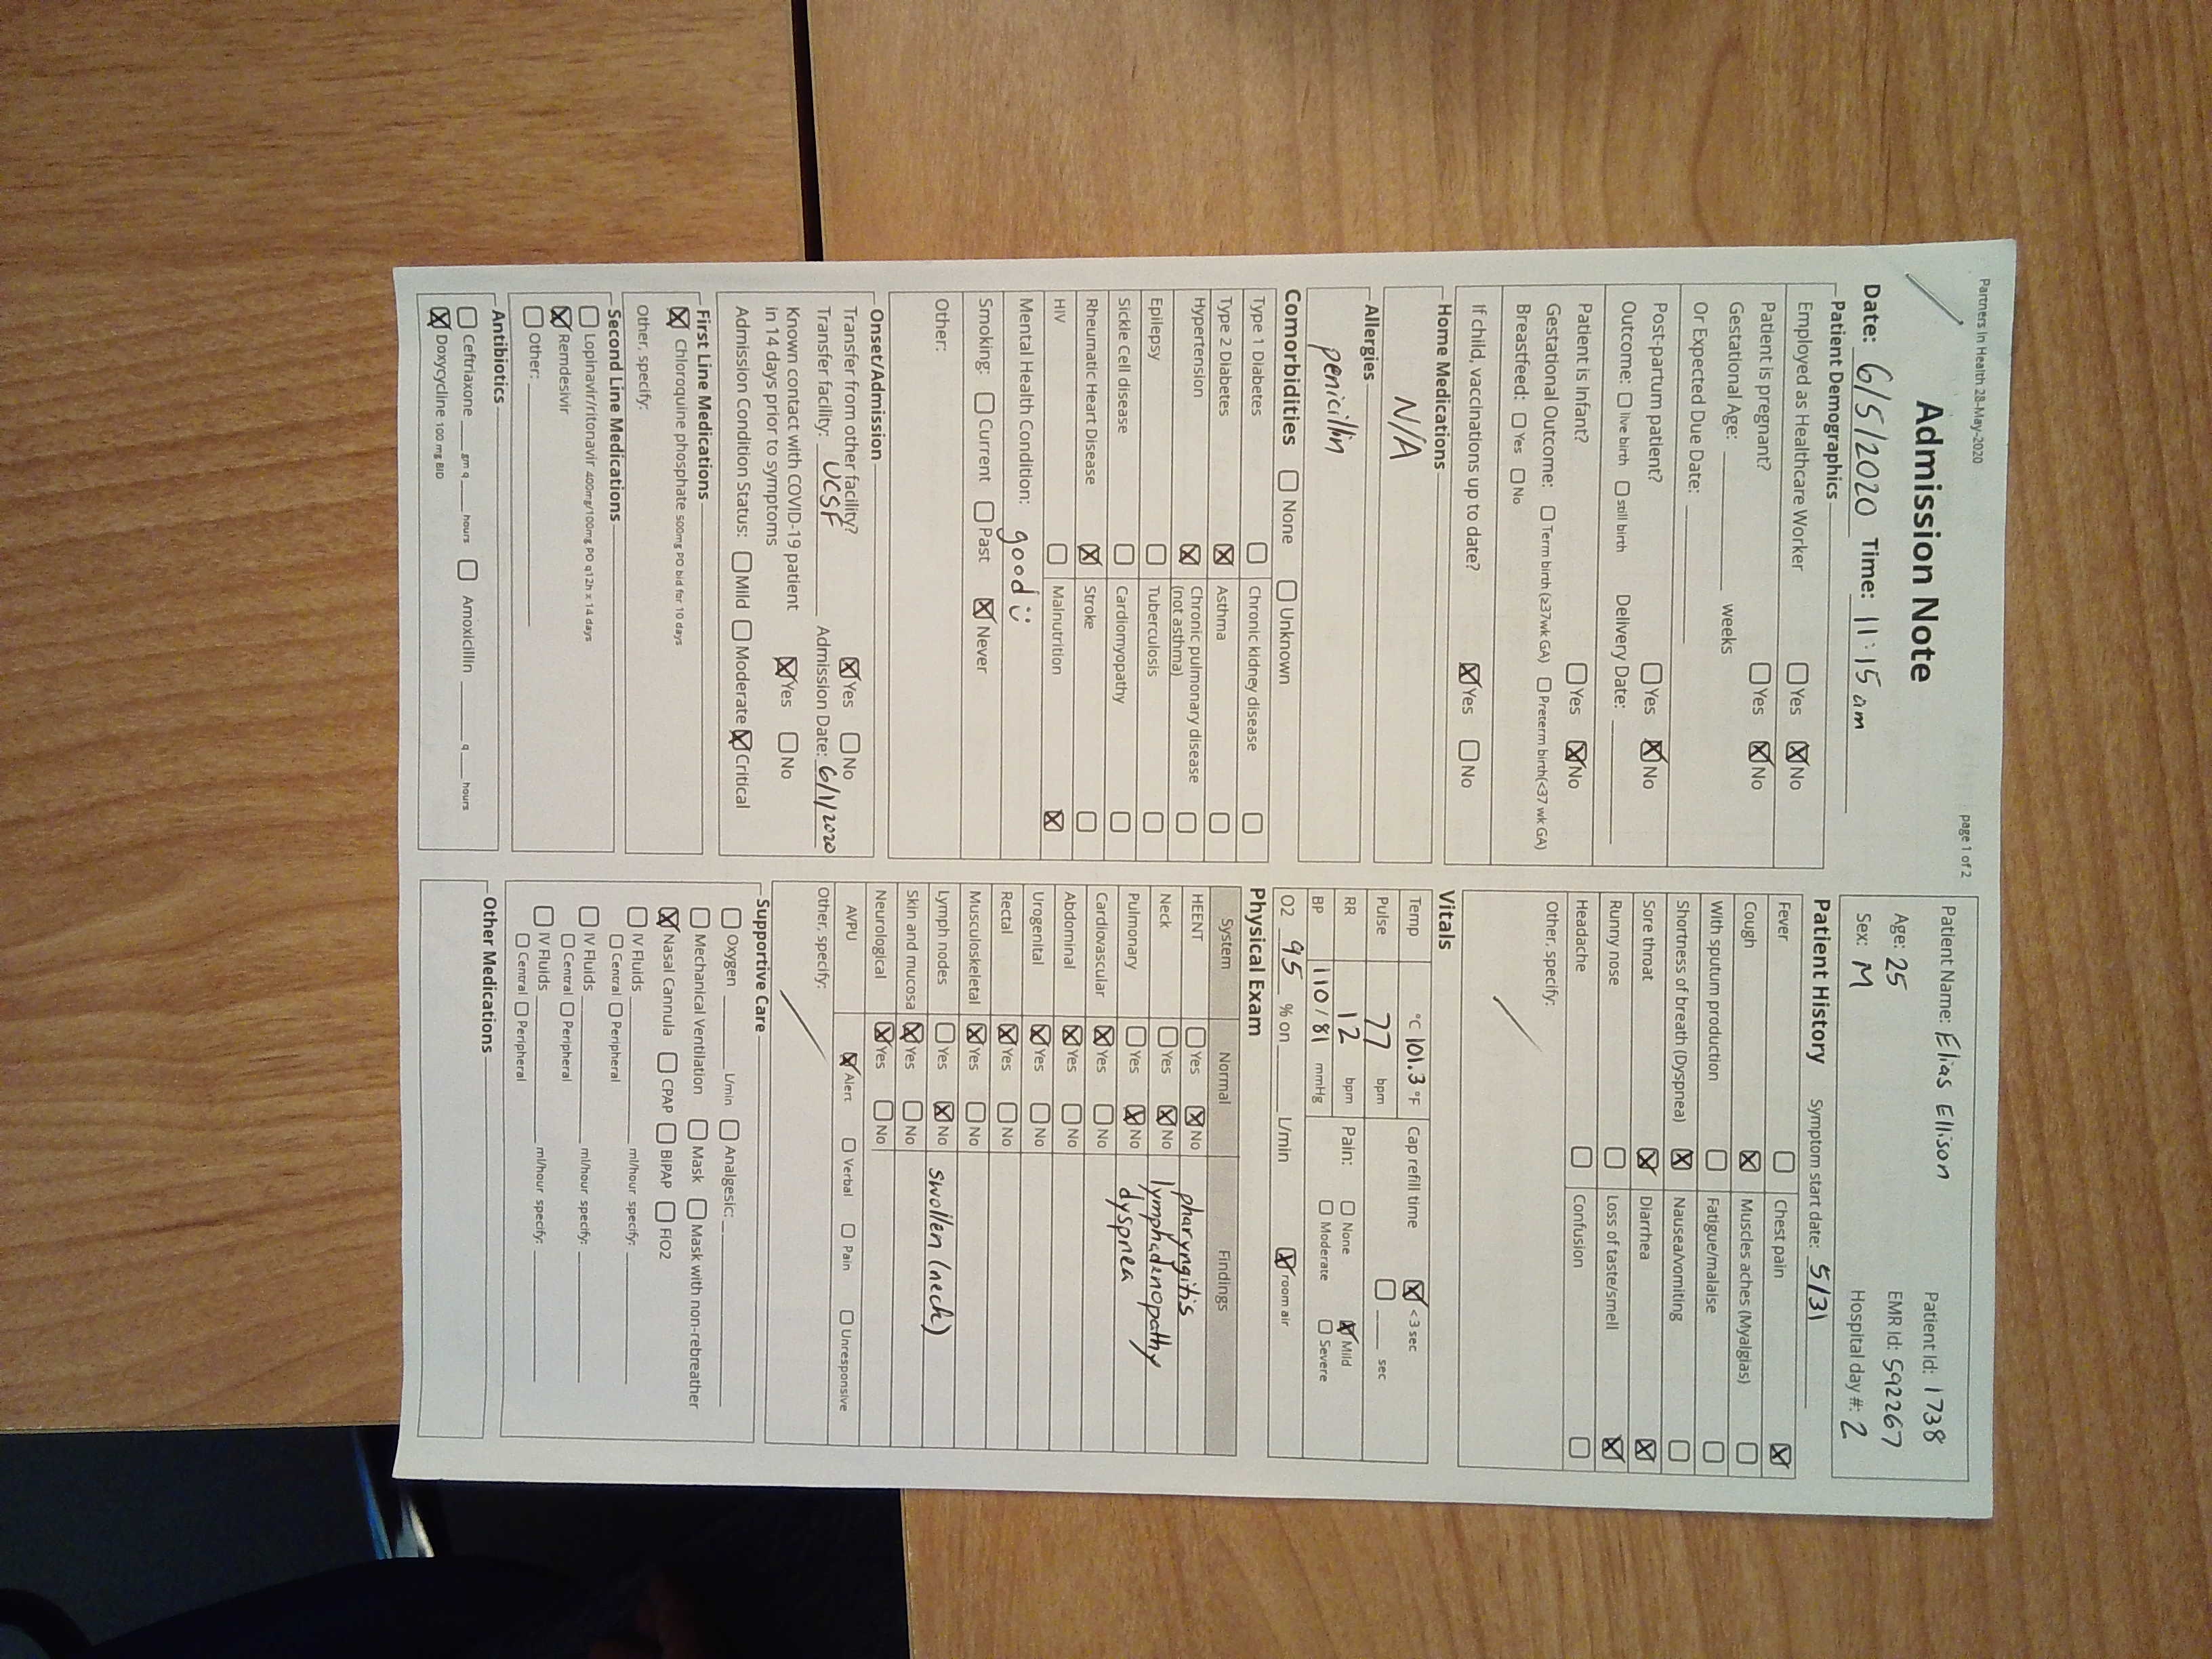 Partners In Health 28-May-2020
page 1 of 2
Admission Note
Date: 6/5/2020 Time: 11:15 am
Patient Demographics
Employed as Healthcare Worker ☐ Yes ☒ No
Patient is pregnant? ☐ Yes ☒ No
Gestational Age: ______ weeks
Or Expected Due Date: ______
Post-partum patient? ☐ Yes ☒ No
Outcome: ☐ live birth ☐ still birth Delivery Date: ______
Patient is Infant? ☐ Yes ☒ No
Gestational Outcome: ☐ Term birth (≥37wk GA) ☐ Preterm birth(<37 wk GA)
Breastfeed: ☐ Yes ☐ No
If child, vaccinations up to date? ☒ Yes ☐ No
Home Medications
N/A
Allergies
penicillin
Comorbidities ☐ None ☐ Unknown
Type 1 Diabetes ☐ Chronic kidney disease ☐
Type 2 Diabetes ☒ Asthma ☐
Hypertension ☒ Chronic pulmonary disease ☐
(not asthma)
Epilepsy ☐ Tuberculosis ☐
Sickle Cell disease ☐ Cardiomyopathy ☐
Rheumatic Heart Disease ☒ Stroke ☐
HIV ☐ Malnutrition ☒
Mental Health Condition: good :)
Smoking: ☐ Current ☐ Past ☒ Never
Other:
Onset/Admission
Transfer from other facility? ☒ Yes ☐ No
Transfer facility: UCSF Admission Date: 6/1/2020
Known contact with COVID-19 patient
in 14 days prior to symptoms ☒ Yes ☐ No
Admission Condition Status: ☐ Mild ☐ Moderate ☒ Critical
First Line Medications
☒ Chloroquine phosphate 500mg PO bid for 10 days
Other, specify:
Second Line Medications
☐ Lopinavir/ritonavir 400mg/100mg PO q12h x 14 days
☒ Remdesivir
☐ Other: ______
Antibiotics
☐ Ceftriaxone ___ gm q ___ hours ☐ Amoxicillin ___ q ___ hours
☒ Doxycycline 100 mg BID
Patient Name: Elias Ellison Patient Id: 1738
Age: 25 EMR Id: 592267
Sex: M Hospital day #: 2
Patient History Symptom start date: 5/31
Fever ☐ Chest pain ☒
Cough ☒ Muscles aches (Myalgias) ☐
With sputum production ☐ Fatigue/malaise ☐
Shortness of breath (Dyspnea) ☒ Nausea/vomiting ☐
Sore throat ☒ Diarrhea ☒
Runny nose ☐ Loss of taste/smell ☒
Headache ☐ Confusion ☐
Other, specify:
Vitals
Temp °C 101.3 °F Cap refill time ☒ <3 sec
Pulse 77 bpm ☐ ___ sec
RR 12 bpm Pain: ☐ None ☒ Mild
BP 110/81 mmHg ☐ Moderate ☐ Severe
O2 95 % on ___ L/min ☒ room air
Physical Exam
System Normal Findings
HEENT ☐ Yes ☒ No pharyngitis
Neck ☐ Yes ☒ No lymphadenopathy
Pulmonary ☐ Yes ☒ No dyspnea
Cardiovascular ☒ Yes ☐ No
Abdominal ☒ Yes ☐ No
Urogenital ☒ Yes ☐ No
Rectal ☒ Yes ☐ No
Musculoskeletal ☒ Yes ☐ No
Lymph nodes ☐ Yes ☒ No swollen (neck)
Skin and mucosa ☒ Yes ☐ No
Neurological ☒ Yes ☐ No
AVPU ☒ Alert ☐ Verbal ☐ Pain ☐ Unresponsive
Other, specify:
Supportive Care
☐ Oxygen ______ L/min ☐ Analgesic: ______
☐ Mechanical Ventilation ☐ Mask ☐ Mask with non-rebreather
☒ Nasal Cannula ☐ CPAP ☐ BiPAP ☐ FiO2
☐ IV Fluids ______ ml/hour specify: ______
☐ Central ☐ Peripheral
☐ IV Fluids ______ ml/hour specify: ______
☐ Central ☐ Peripheral
☐ IV Fluids ______ ml/hour specify: ______
☐ Central ☐ Peripheral
Other Medications